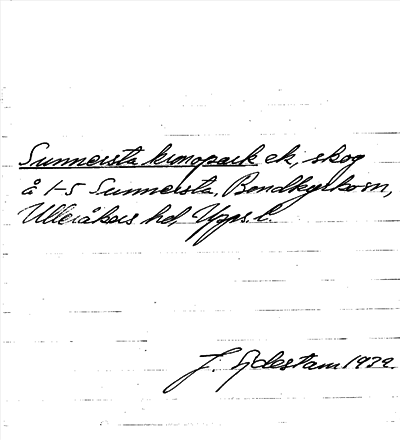 Sunnersta kronopark ek, skog
å 1-5 Sunnersta, Bondkyrko sn,
Ulleråkers hd, Upps. l.
J. Sjdestam 1929.